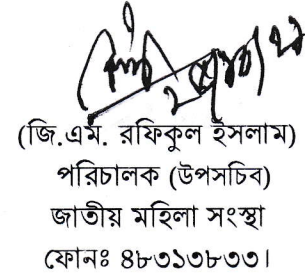 (জি.এম. রফিকুল ইসলাম)
পরিচালক (উপসচিব)
জাতীয় মহিলা সংস্থা
ফোনঃ ৪৮৩১৩৮৩৩।